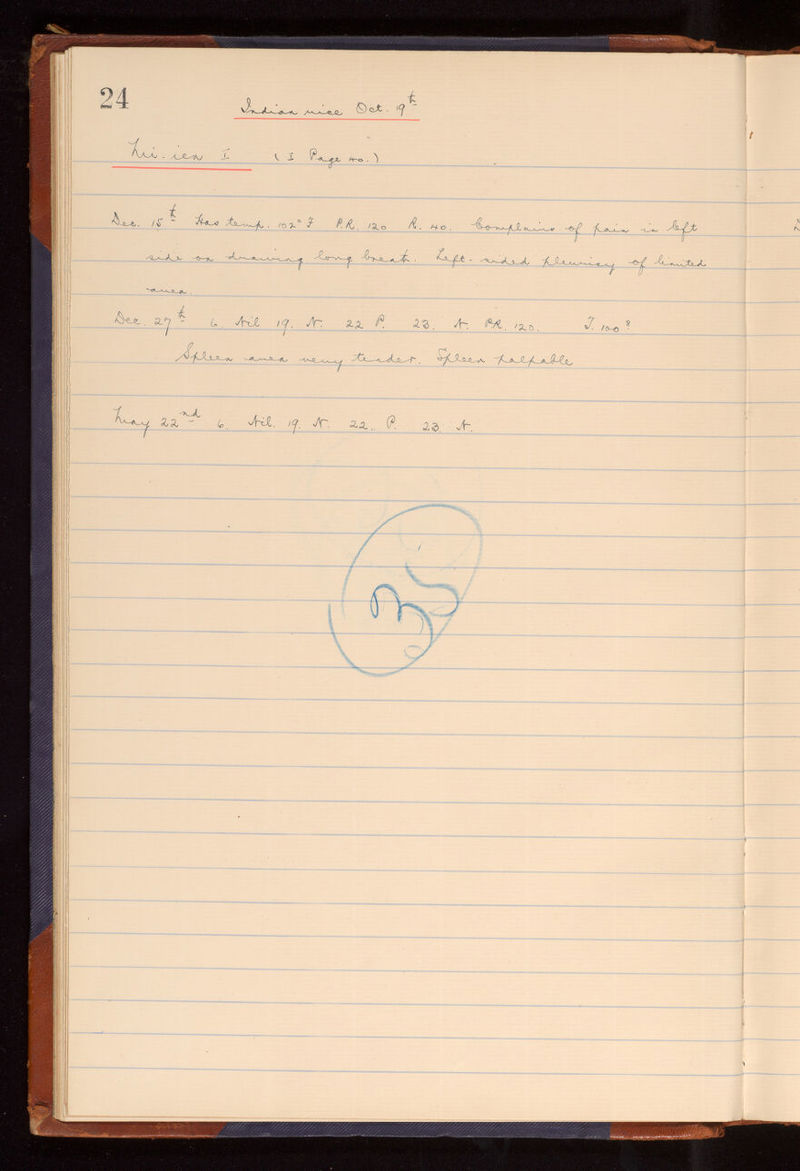 24
Indian rice Oct. 19th
Lii-ien I (I Page 40.)
Dec. 15th Has temp. 102° F P.R. 120 R. 40. Complains of pain in left
side on drawing long breath. Left-sided pleurisy of limited
area.
Dec. 27th 6 Nil 19. N. 22 P. 23. N. P.R. 120. T. 100°
Spleen area very tender. Spleen palpable
May 22nd 6. Nil. 19. N. 22. P. 23. N.
35